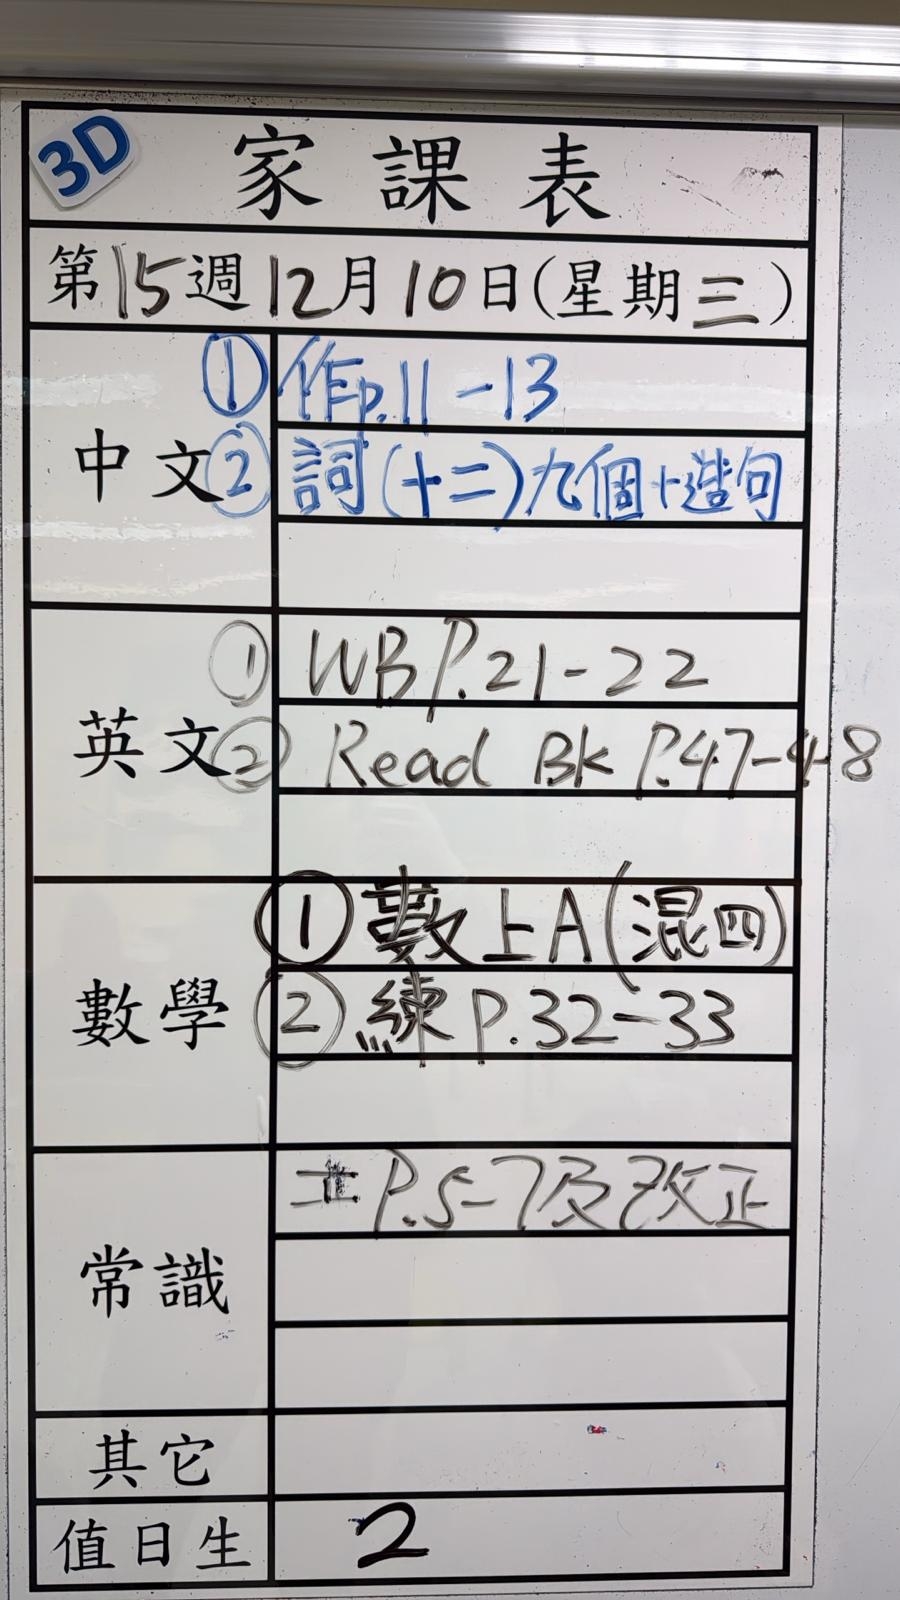 3D
家課表
第15週12月10日(星期三)
中文
① 作p.11-13
② 詞(十二)九個+造句
英文
① WB P.21-22
② Read Bk P.47-48
數學
① 數上A(混四)
② 練 P.32-33
常識
P.5-7及改正
其它
值日生
2